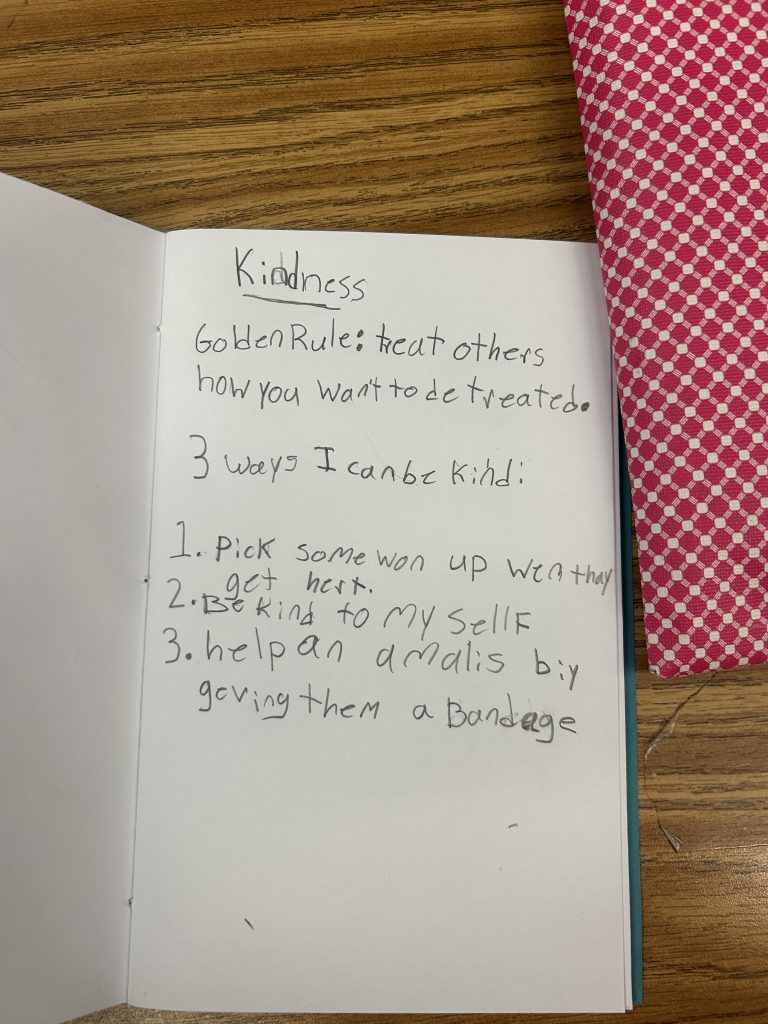 Kindness
Golden Rule: treat others
how you want to de treated.
3 ways I can be kind:
1. Pick some won up wen thay
get hert.
2. Be kind to my sellf
3. help an amalis biy
geving them a Bandege